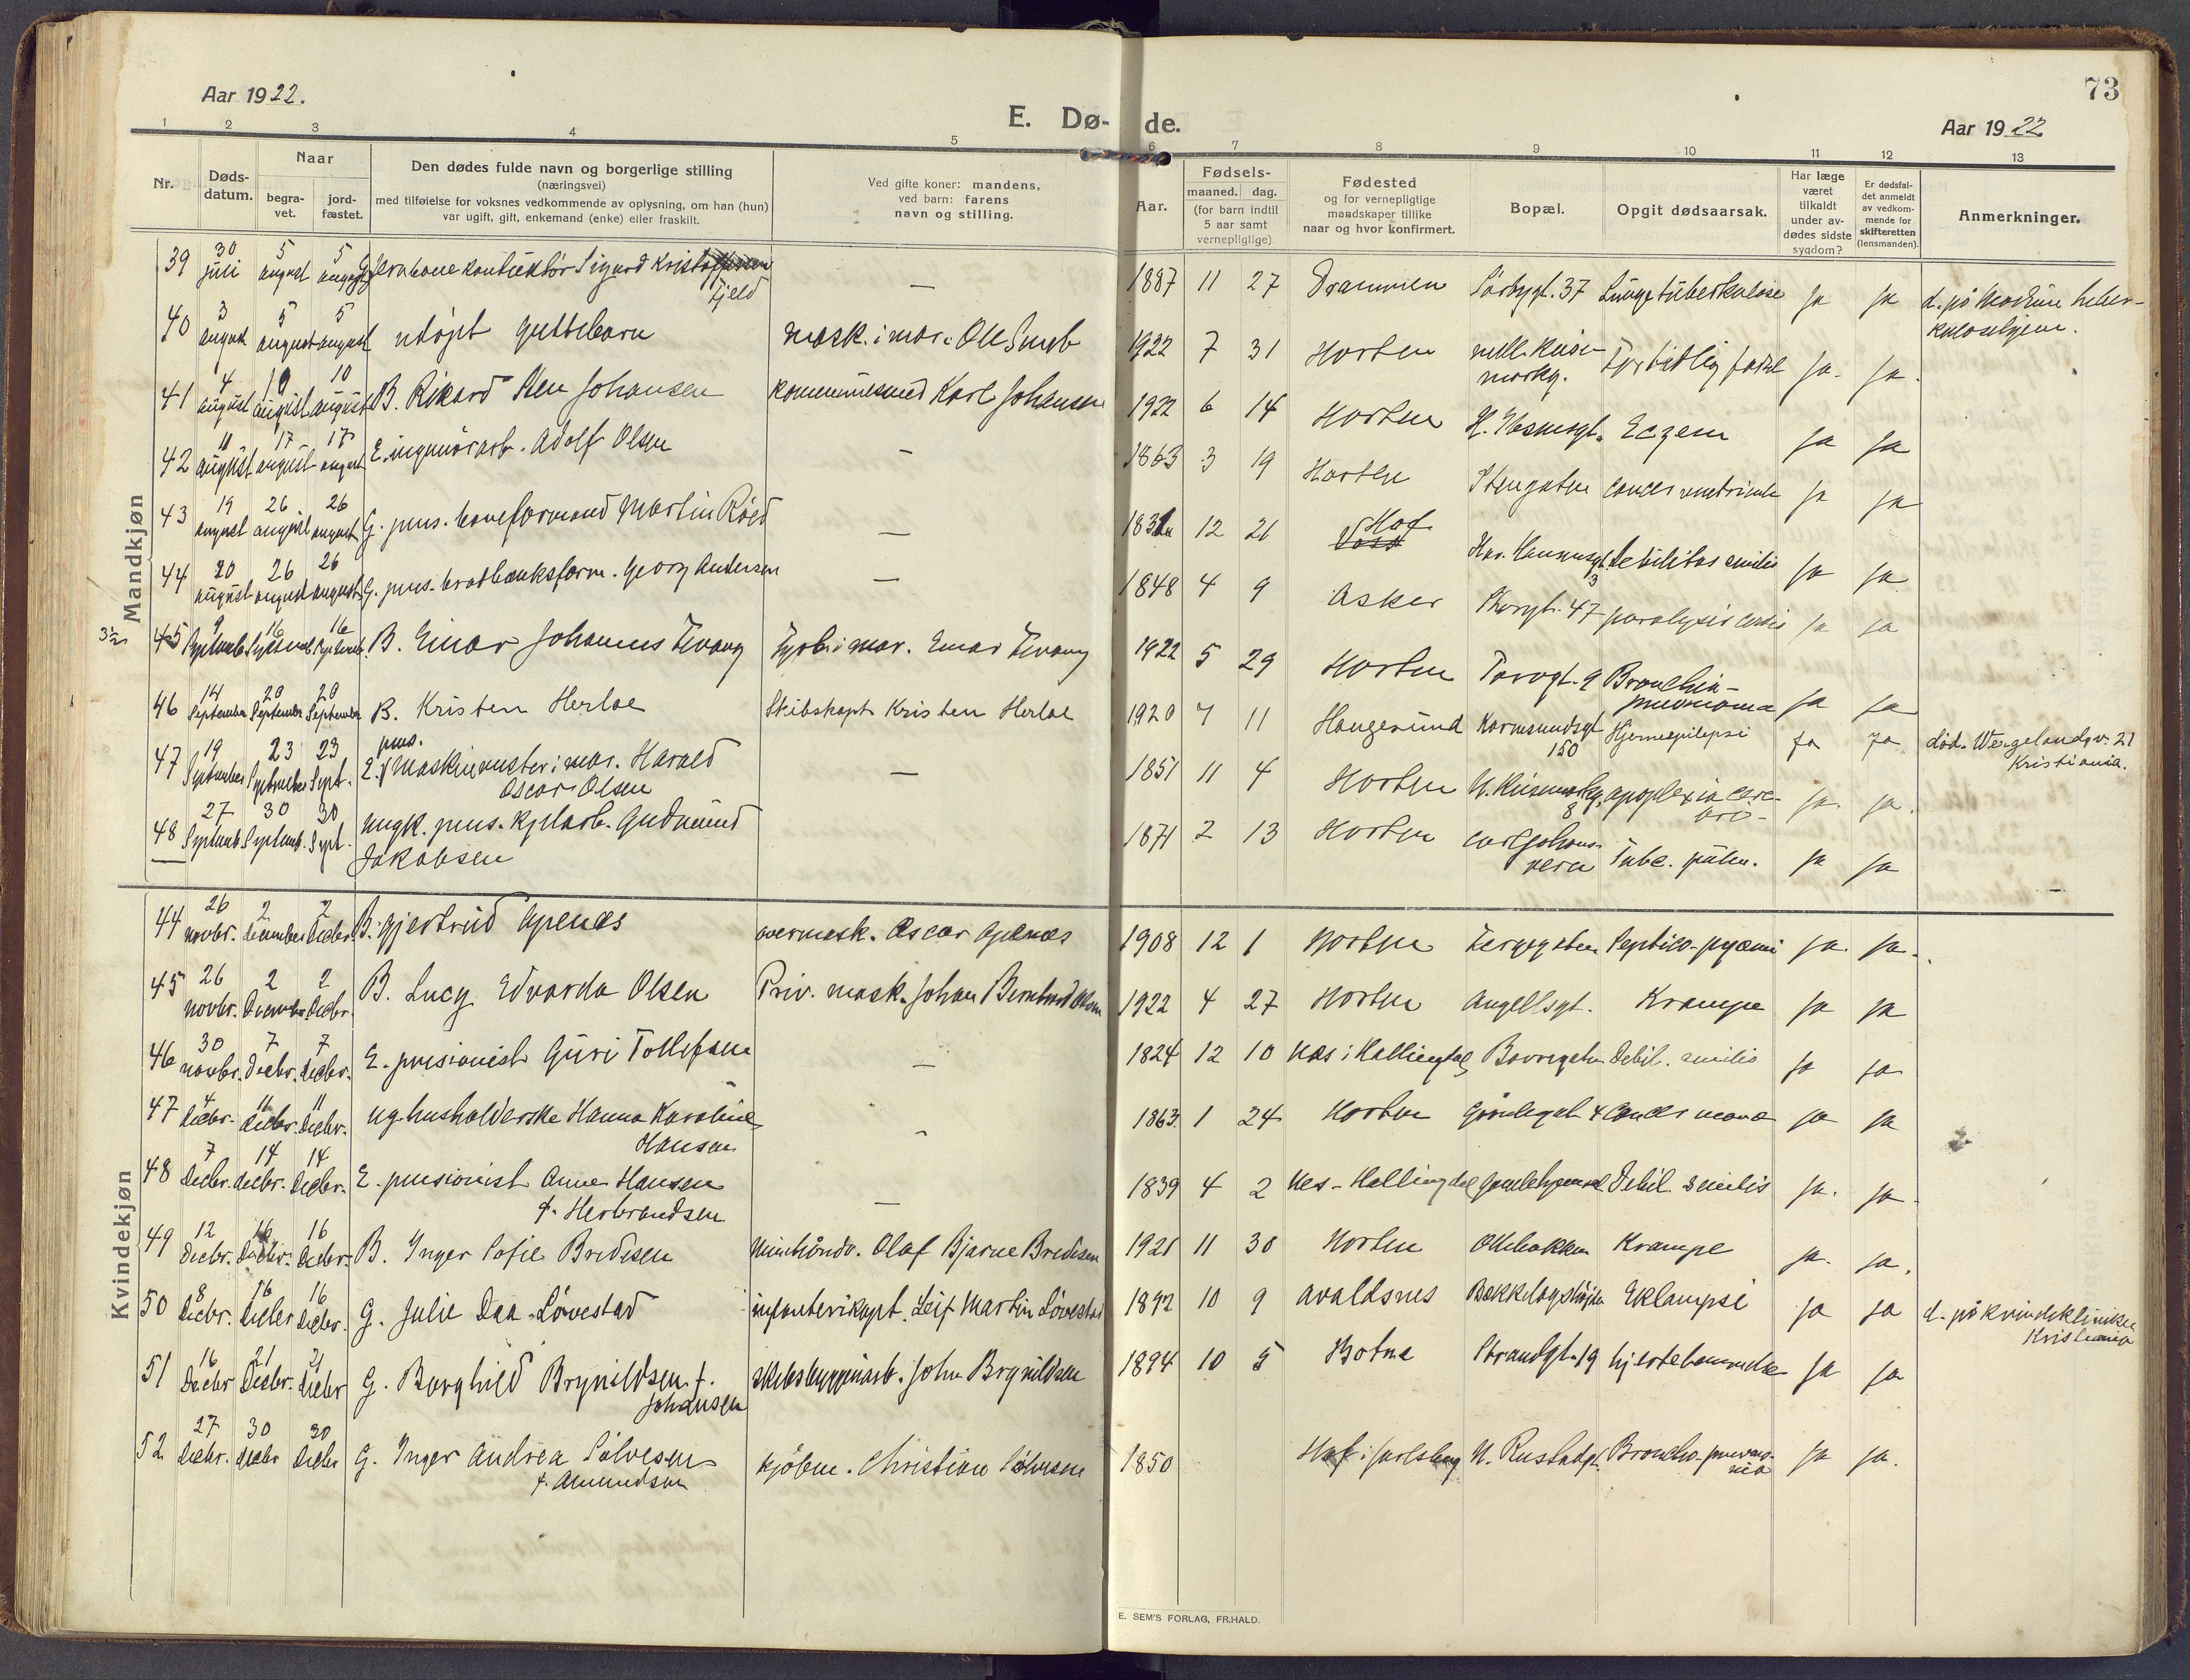 Aar 1922.
E. Dø- de.
73
Aar 1922
1 2 3 4 5 6 7 8 9 10 11 12 13
Nr.
Døds-
datum.
Naar
begra-
vet.
jord-
fæstet.
Den dødes fulde navn og borgerlige stilling
(næringsvei)
med tilføielse for voksnes vedkommende av oplysning, om han (hun)
var ugift, gift, enkemand (enke) eller fraskilt.
Ved gifte koner: mandens,
ved barn: farens
navn og stilling.
Aar.
Fødsels-
maaned. dag.
(for barn indtil
5 aar samt
vernepliglige)
Fødested
og for vernepligtige
mandskaper tillike
naar og hvor konfirmert.
Bopæl.
Opgit dødsaarsak.
Har læge
været
tilkaldt
under av-
dødes sidste
sygdom?
Er dødsfal-
det anmeldt
av vedkom-
mende for
skifteretten
(lensmanden).
Anmerkninger.
Mandkjøn
39 30 juli 5 august 5 august G. jernbanekonduktør Sigurd Kristoffersen Fjeld — 1887 11 27 Drammen 37 Lungetuberkulose ja ja d. på tuber-
kulosehjem.
40 3 august 5 august 5 august udøpt guttebarn mask. i mar. Ole 1922 7 31 Horten For tidlig født ja. ja.
41 4 august 10 august 10 august B. Rikard Sten Johansen Karl Johansen 1922 6 14 Horten Eczem ja ja
42 11 august 17 august 17 august E. ingeniörarb. Adolf Olsen — 1863 3 19 Horten Stengaten cancer ventriculi ja ja
43 19 august 26 august 26 august G. pens. Martin Röed — 12 21 Hof Debilitas senilis ja ja
44 20 august 26 august 26 august G. pens. Georg Andersen — 1848 4 9 Asker 47 paralysis cordis ja ja
3½
45 9 Septemb. 16 Septemb. 16 Septemb. B. Einar Johannes Tevang Fyrb. i mar. Einar Tevang 1922 5 29 Horten Torvgt. 9 Bronchia-
pneumoma ja ja
46 14 September 20 September 20 September B. Kristen Herloe Skibskapt Kristen Herloe 1920 7 11 Haugesund Karmsundsgt
150 Hjerneepilepsi ja ja död. Wergelandsv. 21
Kristiania.
47 19 September 23 September 23 Sept. E. pens. Maskinmester i mar. Harald
Oscar Olsen — 1851 11 4 Horten 8 apoplexia cere-
bri - ja. ja.
48 27 Septemb. 30 Septemb. 30 Sept. ungk. pens. kjelarb. Gudmund
Jakobsen 1871 2 13 Horten Carljohans-
vern Tube. pulm. ja ja
Kvindekjøn
44 26 novbr. 2 december 2 decbr. B. Gjertrud Apenæs overmask. Oscar Apenæs 1908 12 1 Horten Septico-pyæmi ja. ja.
45 26 novbr. 2 Decembr. 2 Decbr. B. Lucy Edvarda Olsen Priv. mask. Johan Bernhard Olsen 1922 4 27 Horten Angellsgt. Krampe ja ja
46 30 novbr. 7 decbr. 7 decbr. E. pensionist Guri Tollefsen — 1824 12 10 Næs i Hallingdal Borregaten Debil. senilis ja ja
47 4 decbr. 11 decbr. 11 decbr. ug. husholderske Hanna Karoline
Hansen - 1863. 1 24 Horten 4 Cancer mama ja ja
48 7 decbr. 14 decbr. 14 decbr. E. pensionist Anne Hansen
f. Herbrandsen — 1839 4 2 Nes - Hallingdal Gamlehjemmet Debil. senilis ja. ja.
49 12 Decbr. 16 Decbr. 16 Decbr. B. Inger Sofie Bredesen Olaf Bjarne Bredesen 1921 11 30 Horten Ollebakken Krampe ja. ja.
50 8 decbr. 16 decbr 16 decbr. G. Julie Daa-Lövestad infanterikapt. Leif Martin Lövestad 1892 10 9 Avaldsnes Bekkelagshöiden Eklampsi ja ja d. på Kvindeklinikken
Kristiania
51 16 Decbr 21 Decbr. 21 Decbr G. Borghild Brynildsen f.
Johansen skibsbyggerarb. John Brynildsen 1894 10 5 Botne Strandgt. 19 hjertelammelse ja ja
52 27 decbr. 30 decbr 30 decbr G. Inger Andrea Sölvesen
f. Amundsen kjöbm. Christian Sölvesen 1850 Hof i Jarlsberg N. Rustadgt. Broncho-pneumo-
nia ja ja.
E. SEM'S FORLAG, FR.HALD.